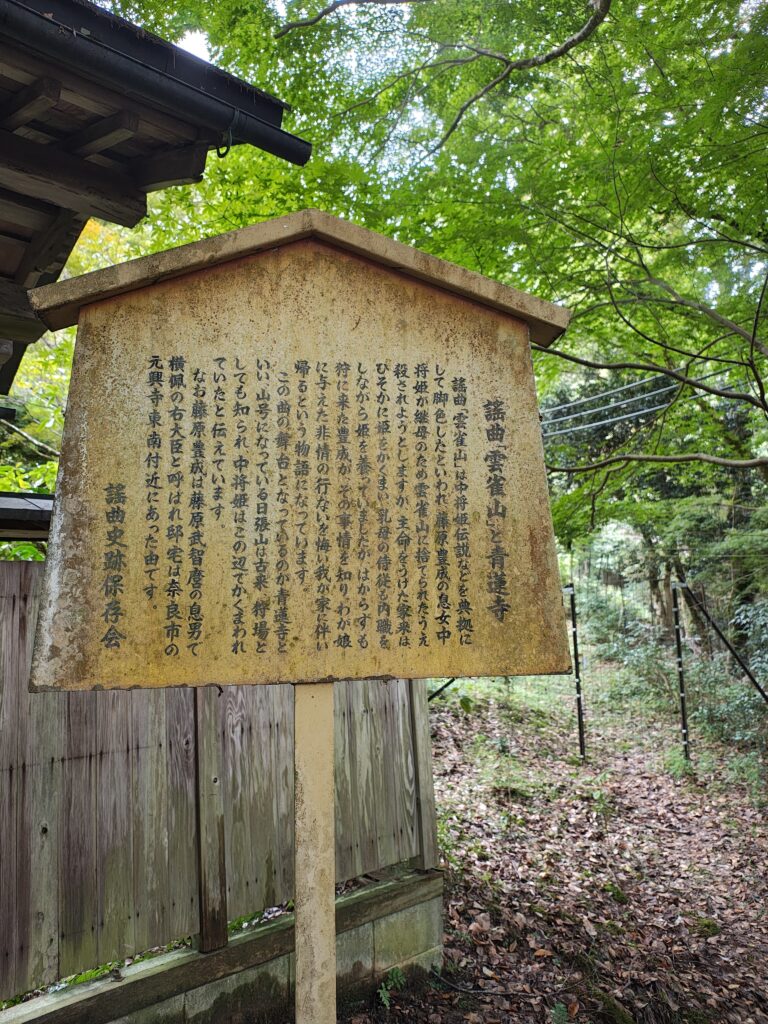 謡曲「雲雀山」と青蓮寺
謡曲「雲雀山」は中将姫伝説などを典拠に
して脚色したといわれ、藤原豊成の息女中
将姫が継母のため雲雀山に捨てられたうえ
殺されようとしますが、主命をうけた家来は、
ひそかに姫をかくまい、乳母の侍従も内職を
しながら姫を養っていましたが、はからずも
狩に来た豊成が、その事情を知り、わが娘
に与えた非情の行ないを悔い我が家に伴い
帰るという物語になっています。
この曲の舞台となっているのが青蓮寺と
いい、山号になっている日張山は古来、狩場と
しても知られ、中将姫はこの辺でかくまわれ
ていたと伝えています。
なお藤原豊成は藤原武智麿の息男で
横佩の右大臣と呼ばれ邸宅は奈良市の
元興寺東南付近にあった由です。
謡曲史跡保存会